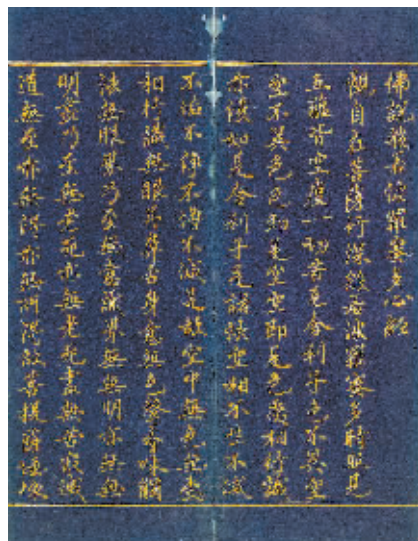 佛說般若波羅蜜多心經
觀自在菩薩行深般若波羅蜜多時照見
五蘊皆空度一切苦厄舍利子色不異空
空不異色色即是空空即是色受想行識
亦復如是舍利子是諸法空相不生不滅
不垢不淨不增不減是故空中無色無受
想行識無眼耳鼻舌身意無色聲香味觸
法無眼界乃至無意識界無無明亦無無
明盡乃至無老死亦無老死盡無苦集滅
道無智亦無得以無所得故菩提薩埵故